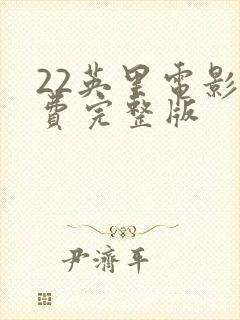 22英里电影
費完整版
尹濟平